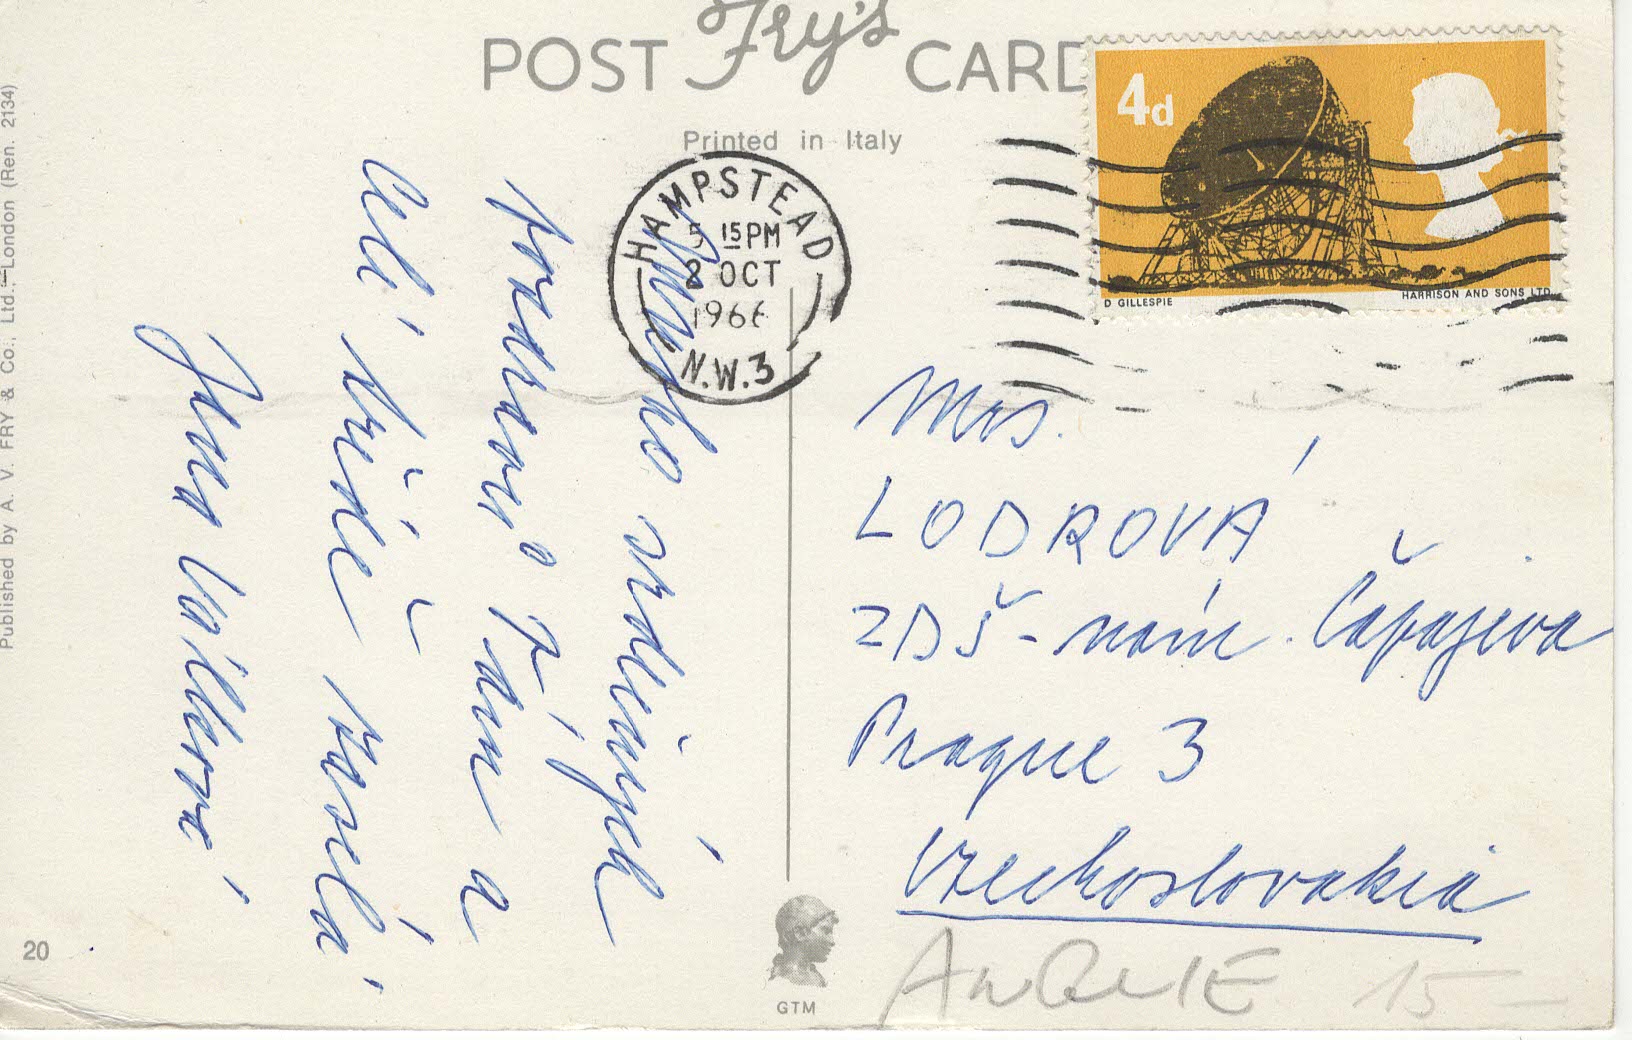 POST Fry's CARD
Printed in Italy
4d
D GILLESPIE
HARRISON AND SONS LTD
HAMPSTEAD
5 15PM
2 OCT
1966
N.W.3
Published by A. V. FRY & Co., Ltd., London (Ren. 2134)
Mnoho srdečných
pozdravů Vám a
celé třídě posílá
Jana
Mrs.
LODROVÁ
ZDŠ - nám. Čapajeva
Prague 3
Czechoslovakia
ANGLIE 15-
20
GTM